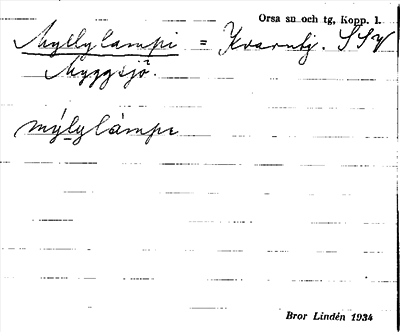 Orsa sn och tg, Kopp. l.
Myllylampi = Kvarntj. SSV
Myggsjö.
mýlylámpi
Bror Lindén 1934